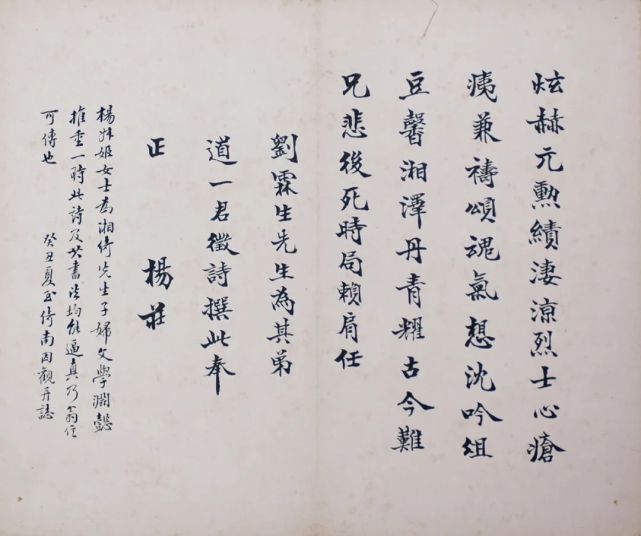 炫赫元勲績淒涼烈士心瘡
痍兼禱頌魂氣想沈吟俎
豆馨湘潭丹青耀古今難
兄悲後死時局賴肩任
劉霖生先生為其弟
道一君徵詩撰此奉
正 楊莊
楊姊姬女士為湘綺先生子婦文學淵懿
推重一時此詩及其書法均能逼真乃翁信
可傳也 癸丑夏至後南因觀并誌